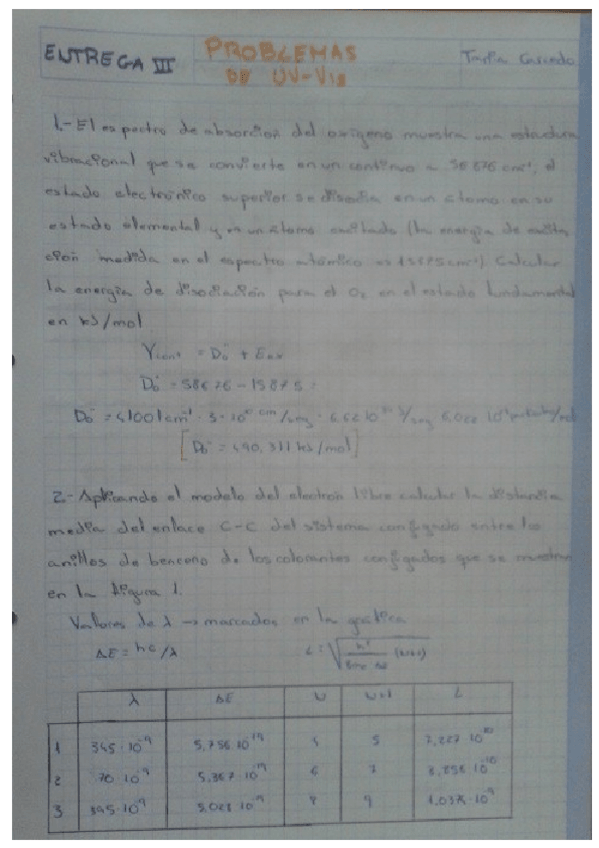 ENTREGA III
PROBLEMAS
DE UV-VIS
1.- El espectro de absorción del oxígeno muestra una estructura
vibracional que se convierte en un continuo a 56 676 cm⁻¹, el
estado electrónico superior se disocia en un átomo en su
estado elemental y en un átomo excitado (la energía de excita
ción medida en el espectro atómico es 15875 cm⁻¹) Calcular
la energía de disociación para el O₂ en el estado fundamental
en kJ/mol
= D₀ +
D₀ = 56676 - 15875
[D₀ = 490,311 kJ/mol]
2.- Aplicando el modelo del electrón libre calcular la distancia
media del enlace C-C del sistema conjugado entre los
anillos de benceno de los colorantes conjugados que se muestran
en la figura 1.
Valores de λ → marcados en la gráfica
ΔE = hc/λ
λ ΔE N N+1 L
1 345·10⁻⁹ 5,756·10⁻¹⁹ 5
2 10⁻⁹ 5,367·10⁻¹⁹ 6 7
3 395·10⁻⁹ 5,028·10⁻¹⁹ 8 9